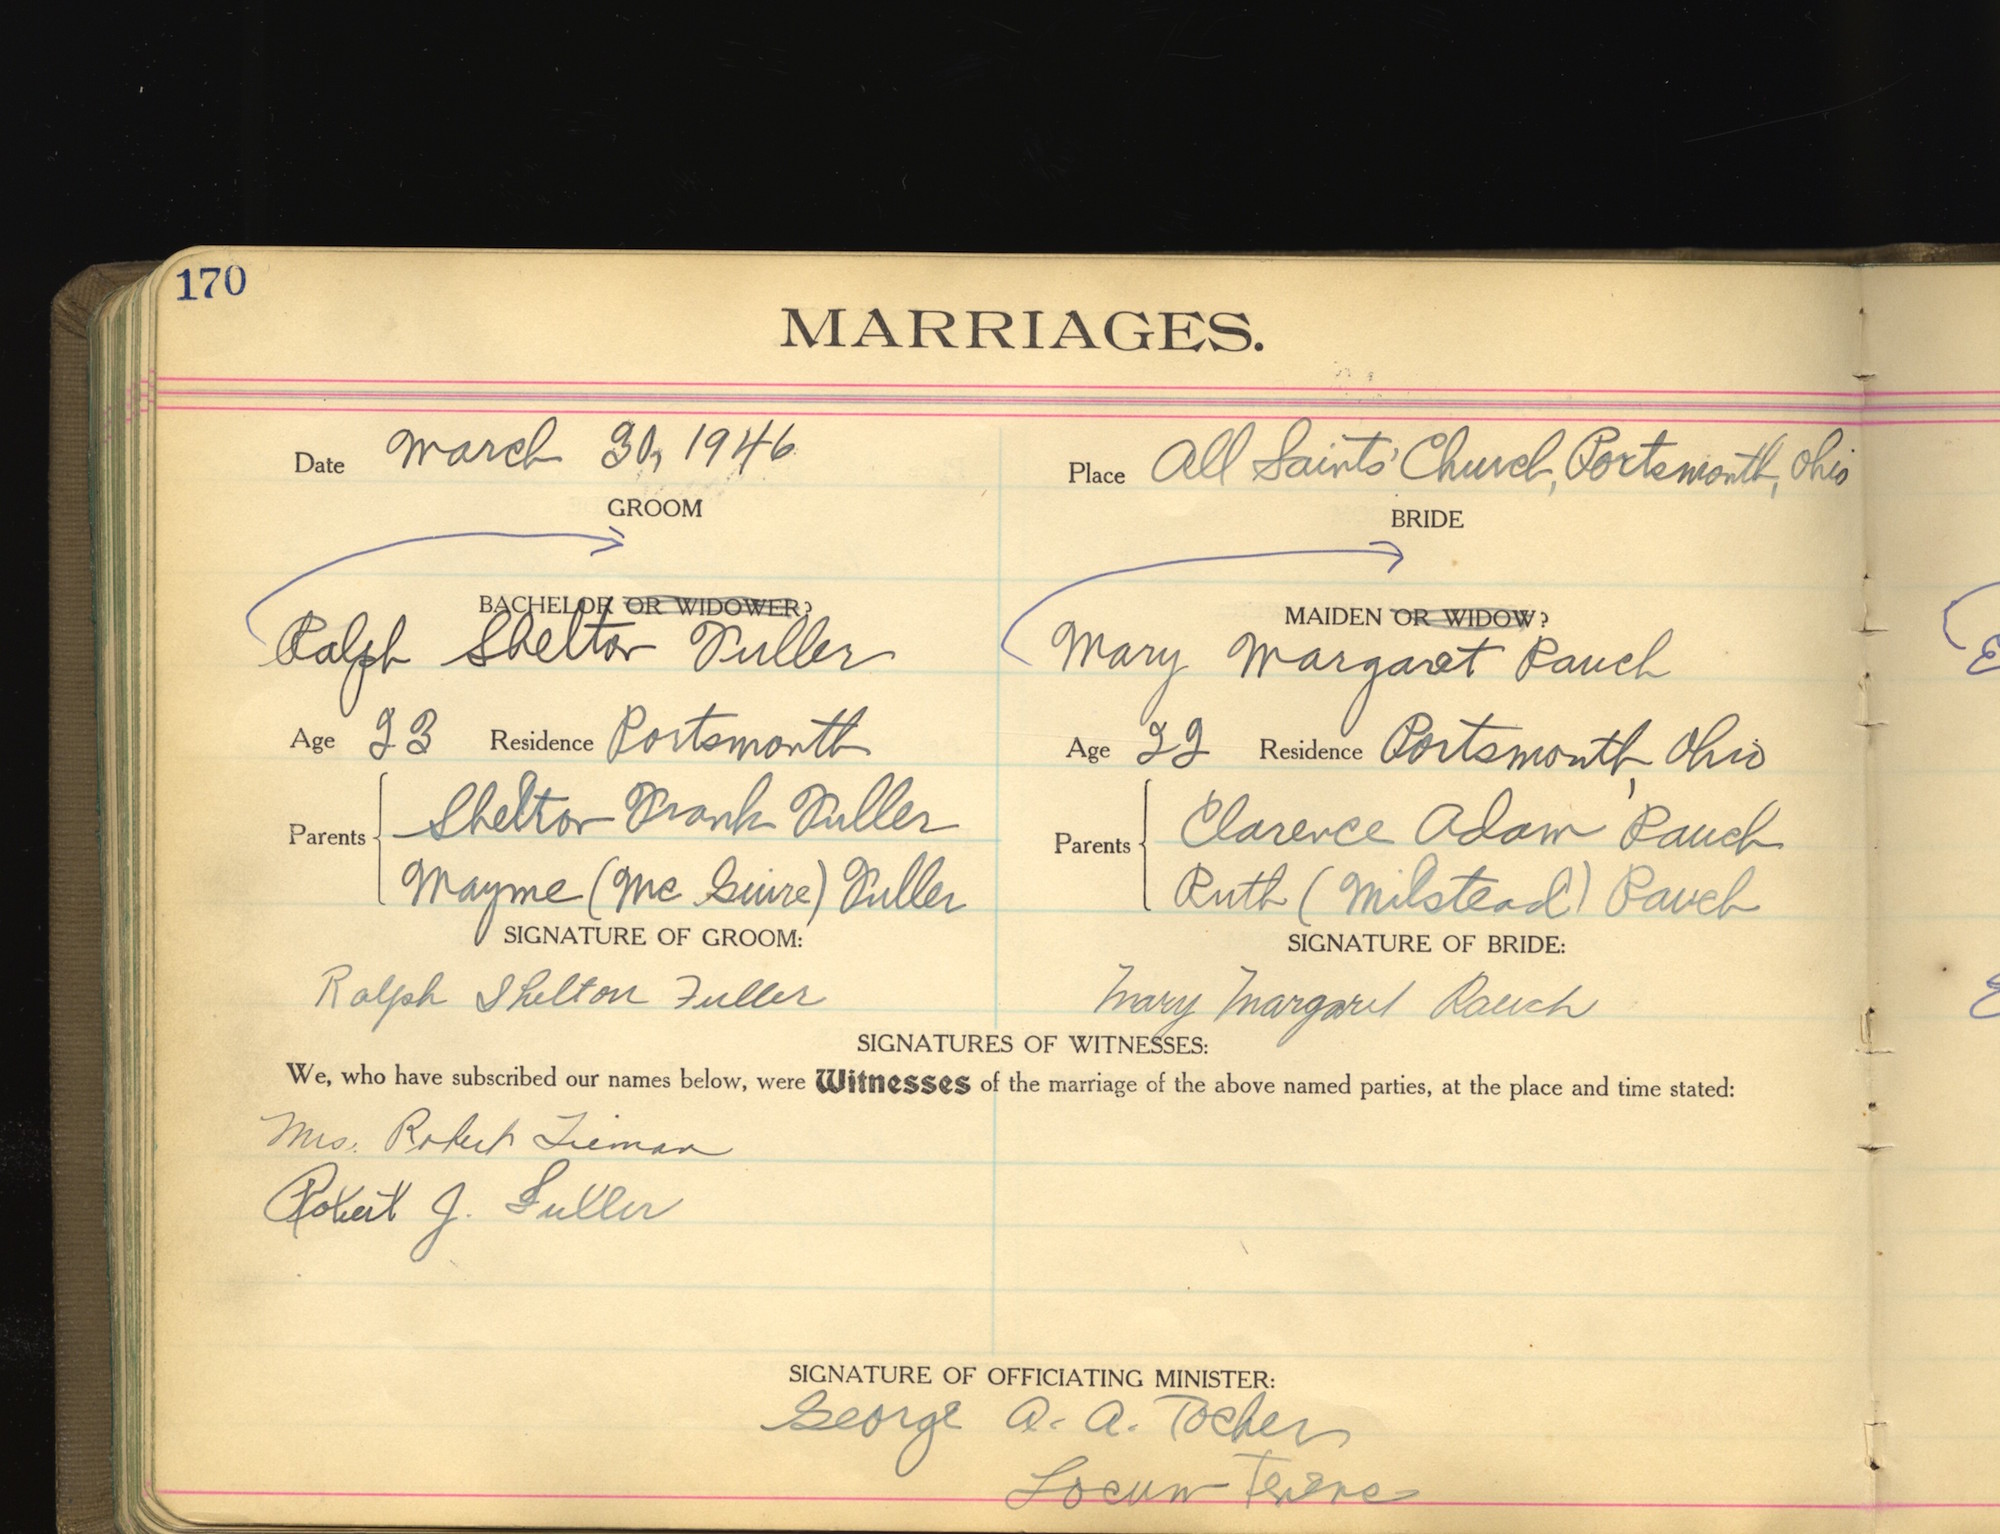 170
MARRIAGES.
Date March 30, 1946
Place All Saints' Church, Portsmouth, Ohio
GROOM
BRIDE
BACHELOR OR WIDOWER?
MAIDEN OR WIDOW?
Ralph Shelton Fuller
Mary Margaret Rauch
Age 23 Residence Portsmouth
Age 22 Residence Portsmouth, Ohio
Parents Shelton Frank Fuller
Mayme (McGuire) Fuller
Parents Clarence Adam Rauch
Ruth (Milstead) Rauch
SIGNATURE OF GROOM:
SIGNATURE OF BRIDE:
Ralph Shelton Fuller
Mary Margaret Rauch
SIGNATURES OF WITNESSES:
We, who have subscribed our names below, were Witnesses of the marriage of the above named parties, at the place and time stated:
Mrs. Robert
Robert J. Fuller
SIGNATURE OF OFFICIATING MINISTER:
George A. A. Tocher
Locum Tenens